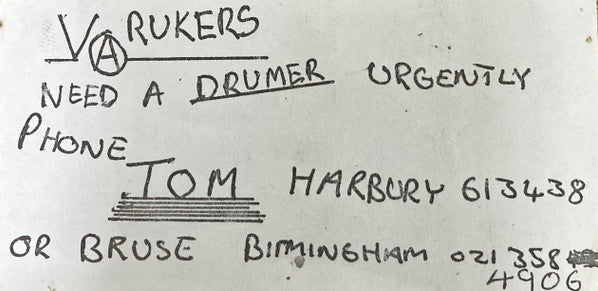 VARUKERS
NEED A DRUMER URGENTLY
PHONE
TOM HARBURY 613438
OR BRUSE BIRMINGHAM 021 358
4906